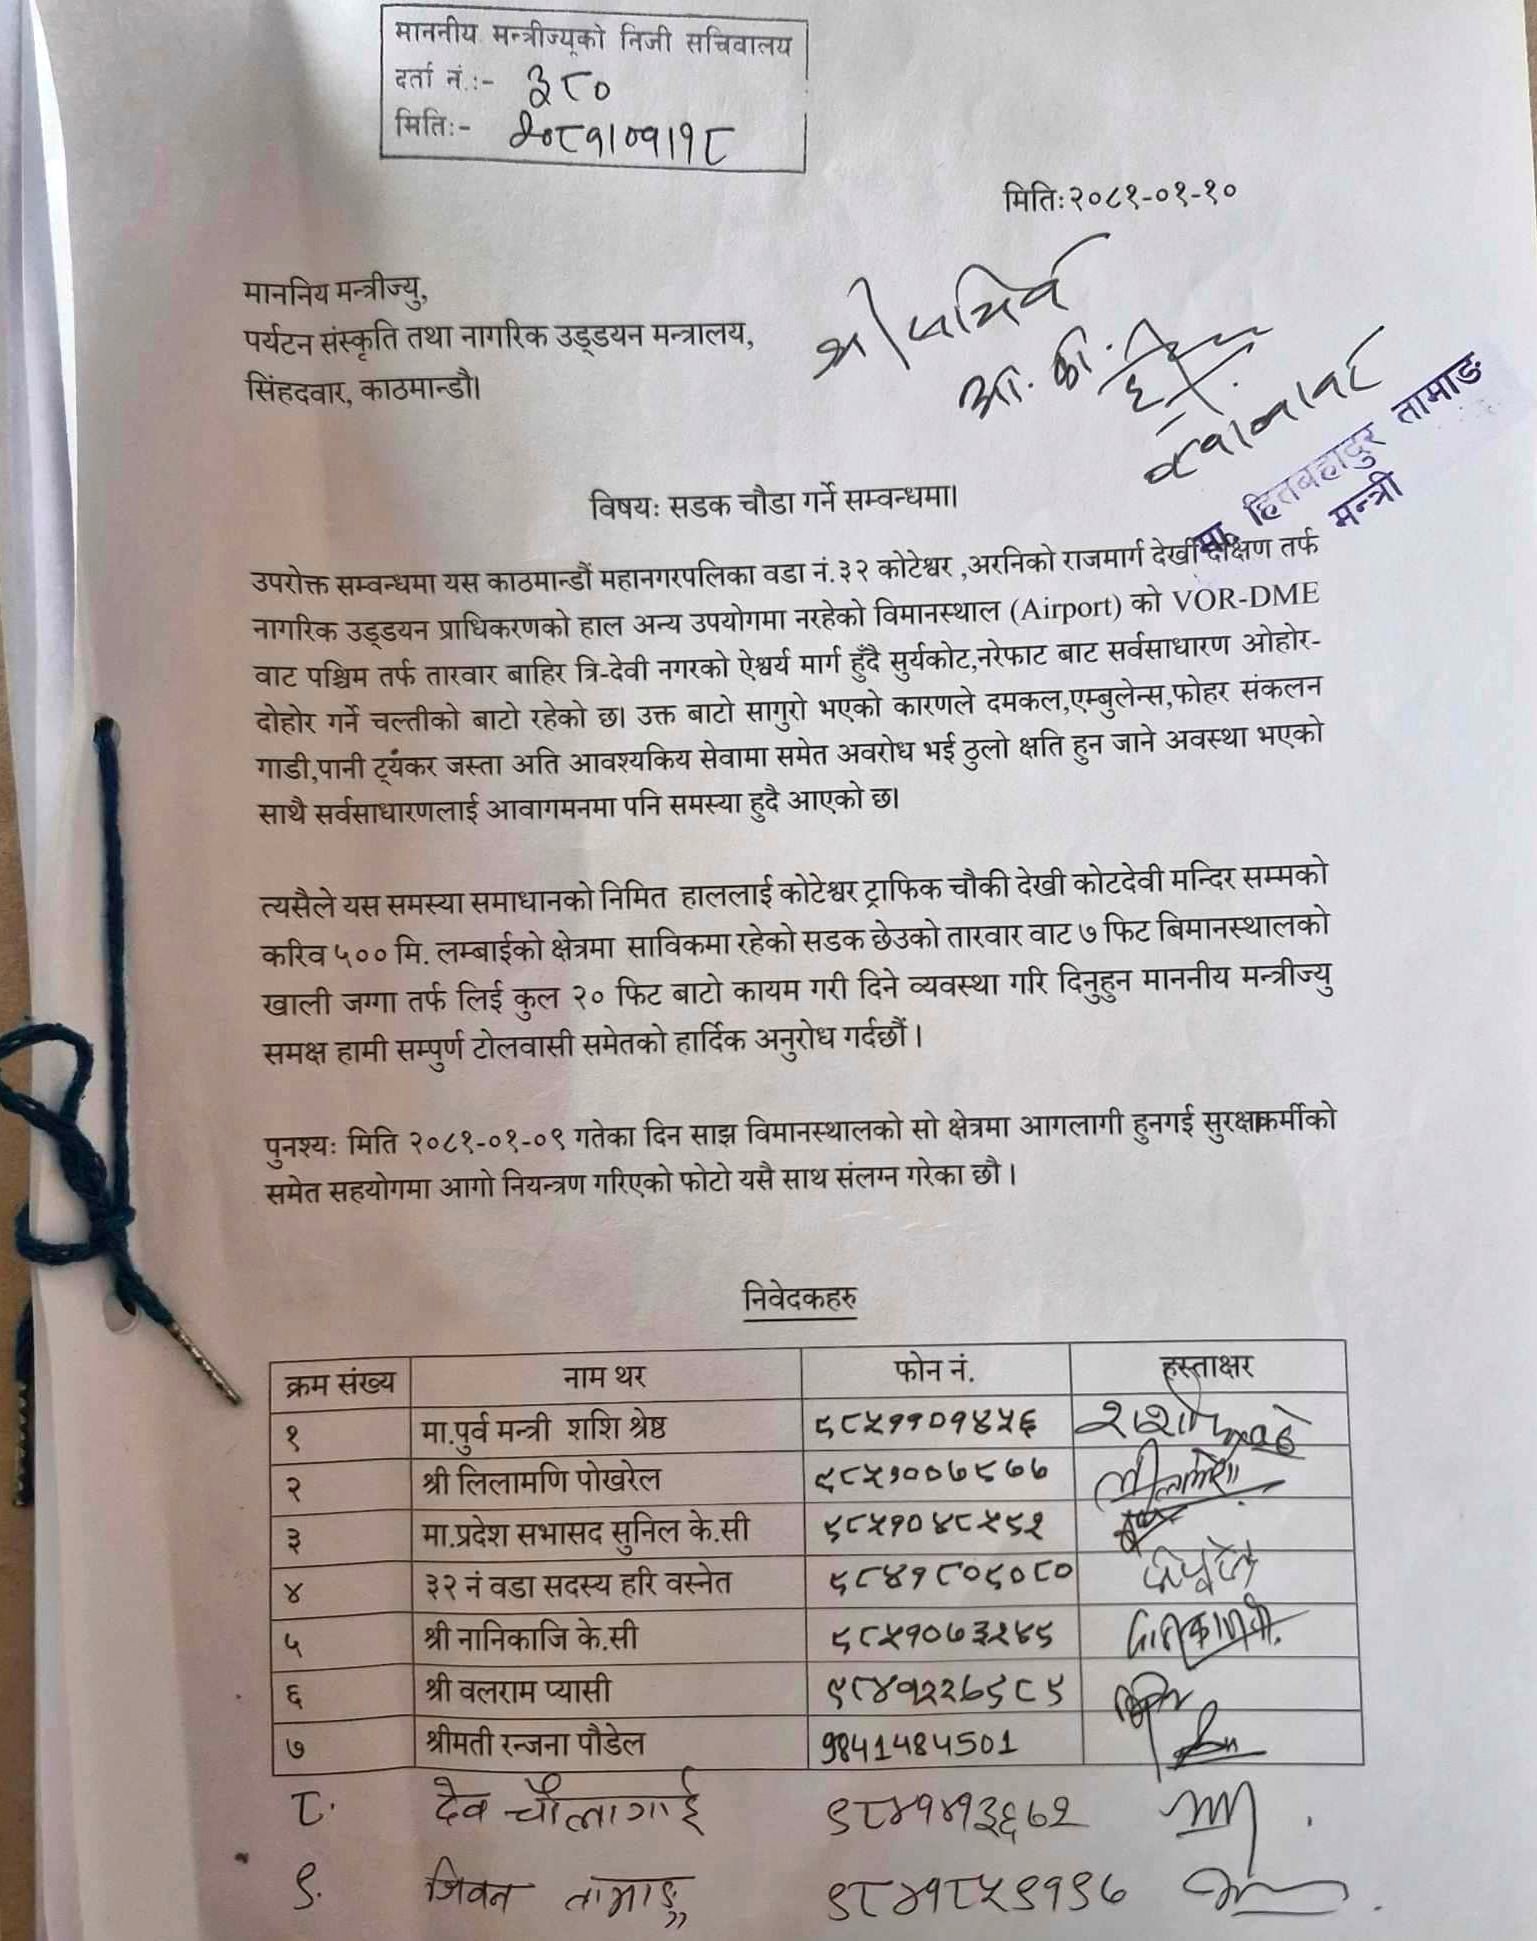 माननीय मन्त्रीज्यूको निजी सचिवालय
दर्ता नं.:- ३८०
मिति:- २०८१/०१/१८
मिति:२०८१-०१-१०
माननिय मन्त्रीज्यु,
पर्यटन संस्कृति तथा नागरिक उड्डयन मन्त्रालय,
सिंहदवार, काठमान्डौ।
श्री
मा. हितबहादुर तामाङ
मन्त्री
विषयः सडक चौडा गर्ने सम्वन्धमा।
उपरोक्त सम्वन्धमा यस काठमान्डौं महानगरपलिका वडा नं.३२ कोटेश्वर ,अरनिको राजमार्ग देखी दक्षिण तर्फ
नागरिक उड्डयन प्राधिकरणको हाल अन्य उपयोगमा नरहेको विमानस्थाल (Airport) को VOR-DME
वाट पश्चिम तर्फ तारवार बाहिर त्रि-देवी नगरको ऐश्वर्य मार्ग हुँदै सुर्यकोट,नरेफाट बाट सर्वसाधारण ओहोर-
दोहोर गर्ने चल्तीको बाटो रहेको छ। उक्त बाटो सागुरो भएको कारणले दमकल,एम्बुलेन्स,फोहर संकलन
गाडी,पानी ट्यंकर जस्ता अति आवश्यकिय सेवामा समेत अवरोध भई ठुलो क्षति हुन जाने अवस्था भएको
साथै सर्वसाधारणलाई आवागमनमा पनि समस्या हुदै आएको छ।
त्यसैले यस समस्या समाधानको निमित हाललाई कोटेश्वर ट्राफिक चौकी देखी कोटदेवी मन्दिर सम्मको
करिव ५०० मि. लम्बाईको क्षेत्रमा साविकमा रहेको सडक छेउको तारवार वाट ७ फिट बिमानस्थालको
खाली जग्गा तर्फ लिई कुल २० फिट बाटो कायम गरी दिने व्यवस्था गरि दिनुहुन माननीय मन्त्रीज्यु
समक्ष हामी सम्पुर्ण टोलवासी समेतको हार्दिक अनुरोध गर्दछौं ।
पुनश्यः मिति २०८१-०१-०९ गतेका दिन साझ विमानस्थालको सो क्षेत्रमा आगलागी हुनगई सुरक्षाकर्मीको
समेत सहयोगमा आगो नियन्त्रण गरिएको फोटो यसै साथ संलग्न गरेका छौ ।
निवेदकहरु
क्रम संख्य नाम थर फोन नं. हस्ताक्षर
१ मा.पुर्व मन्त्री शशि श्रेष्ठ ९८५११०१४५६
२ श्री लिलामणि पोखरेल ९८५१००७९७७
३ मा.प्रदेश सभासद सुनिल के.सी ९८५१०४८५९२
४ ३२ नं वडा सदस्य हरि वस्नेत ९८४१८०९०८०
५ श्री नानिकाजि के.सी ९८५१०७३२४९
६ श्री वलराम प्यासी ९८४१२२७९८९
७ श्रीमती रन्जना पौडेल 9841484501
८. देव चौलागाई ९८४१४१३६७२
९. जिवन तामाङ ९८४१८५९१९७